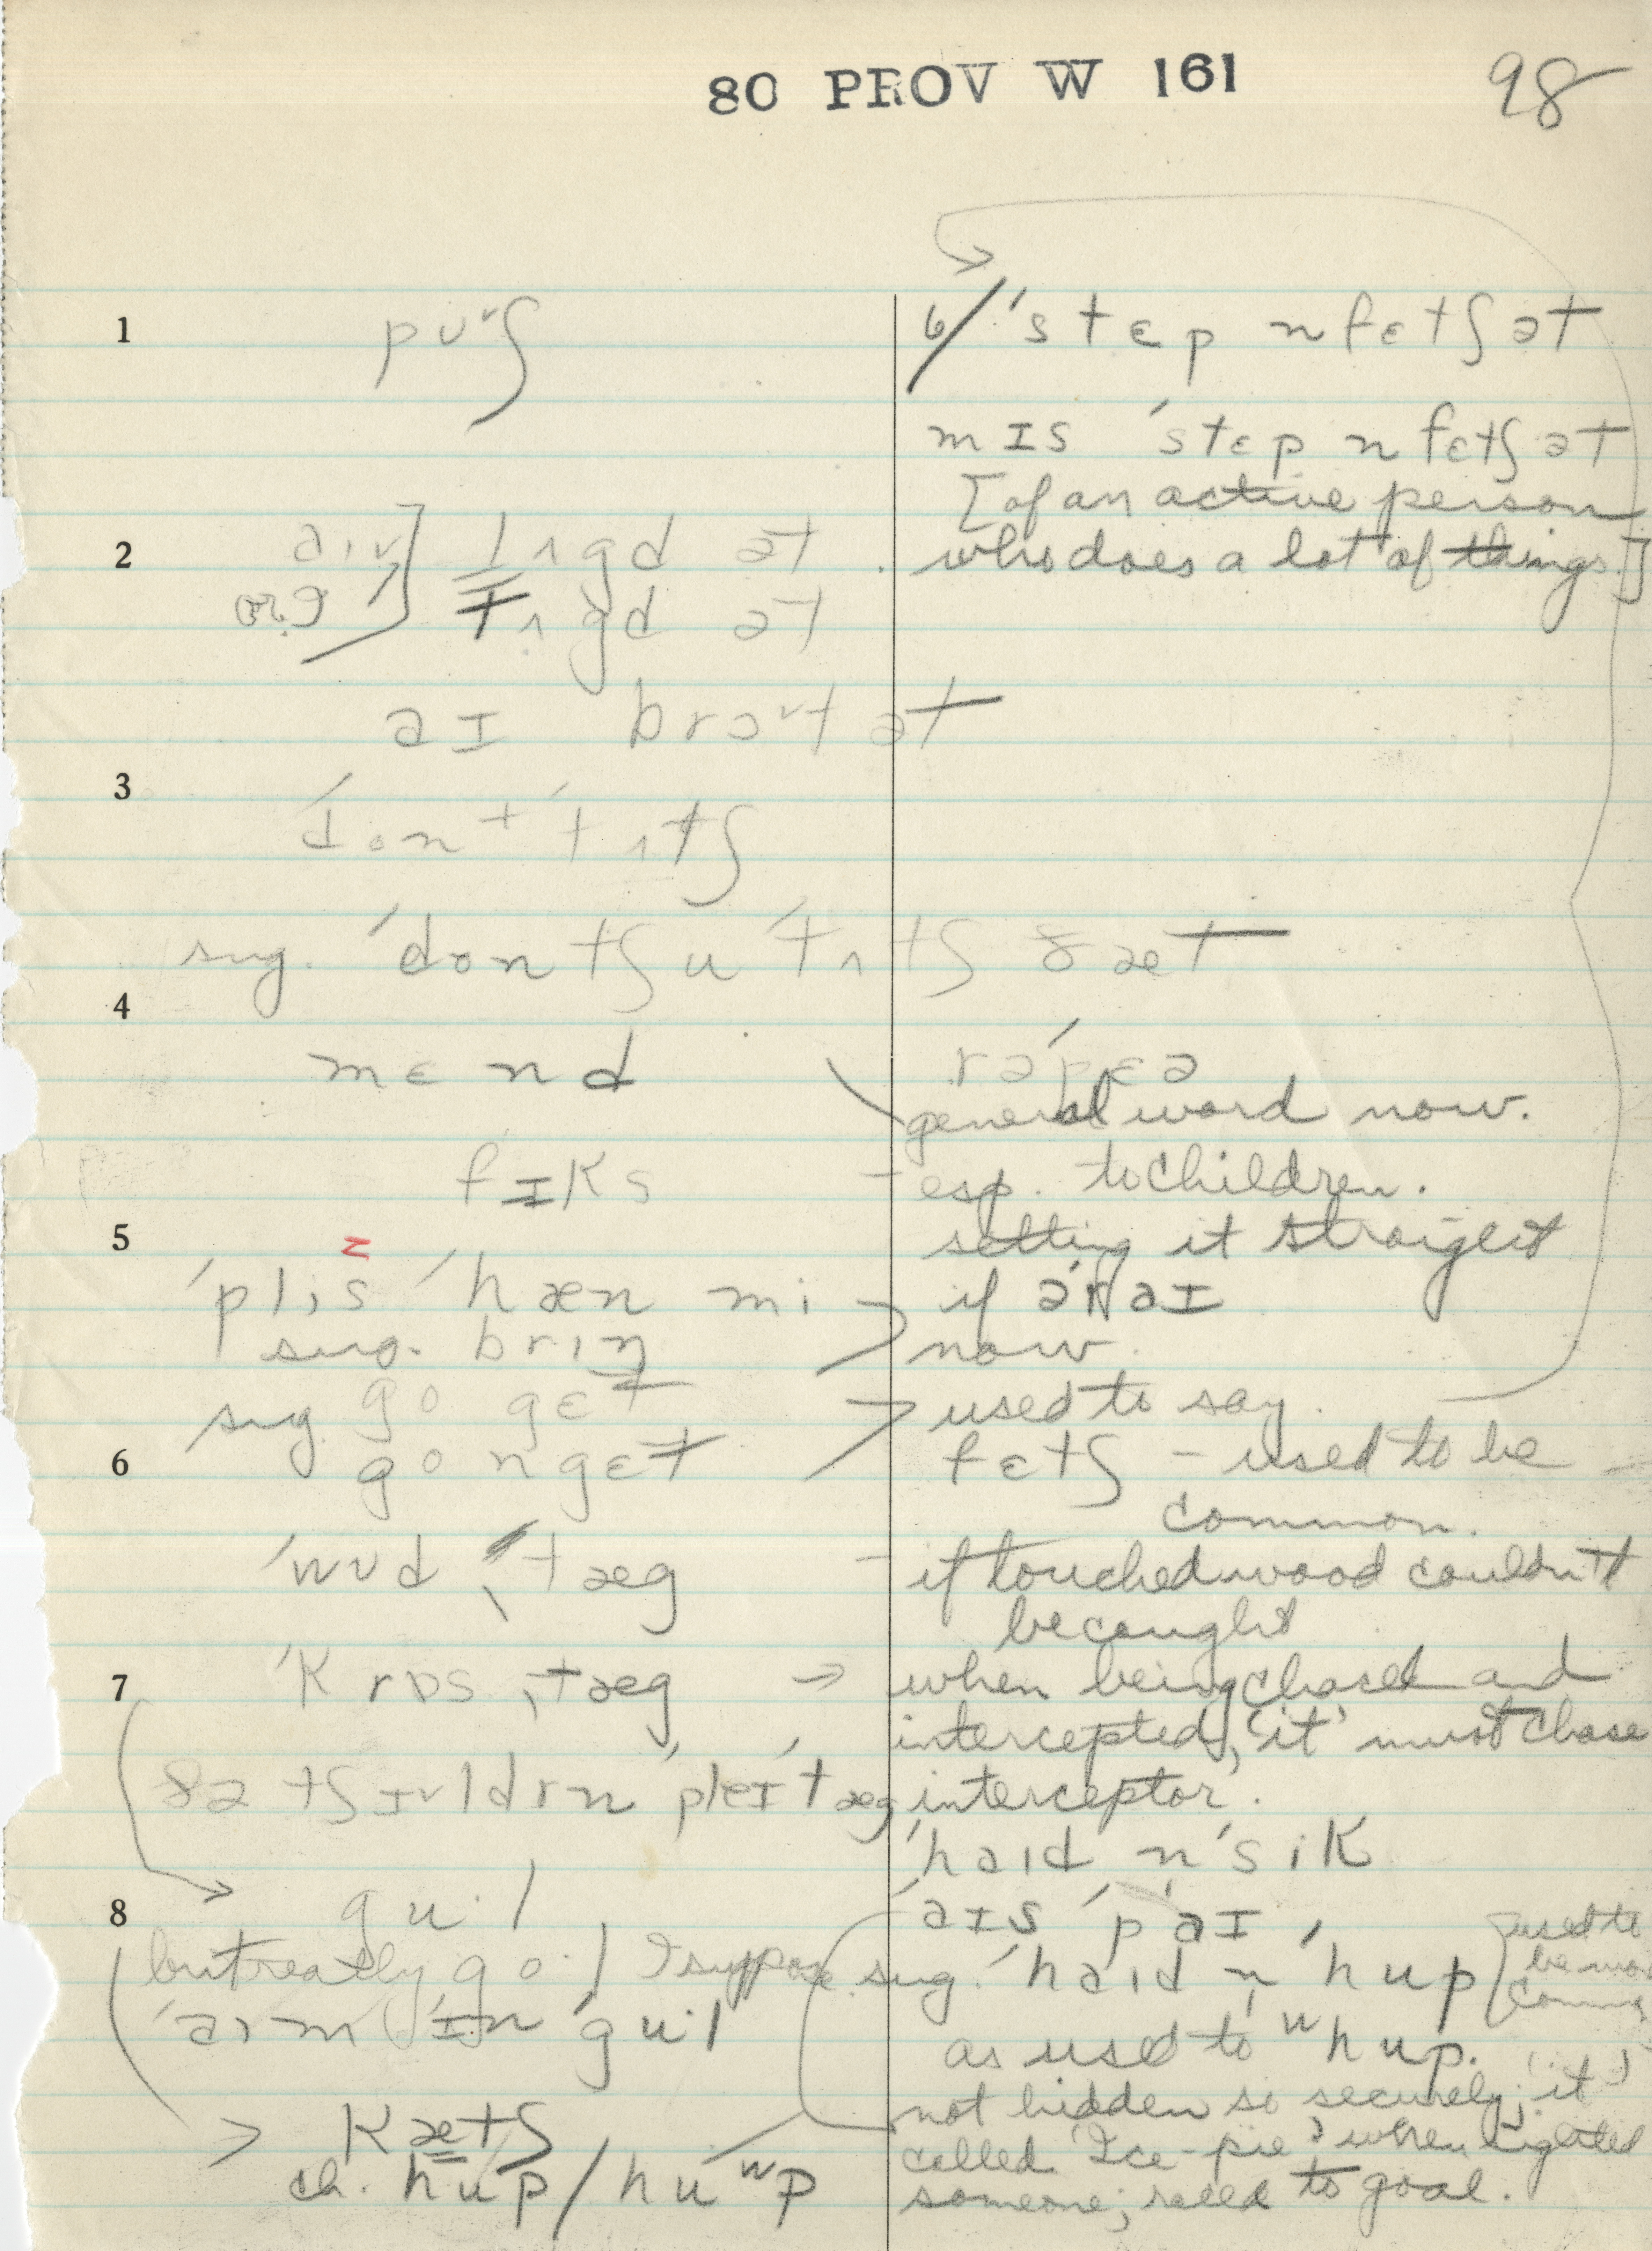 80 PROV W 161
98
1
pʊᵛʃ
6/ ˈstɛp n fɛtʃ ət
mɪs ˈstɛp n fɛtʃ ət
[of an active person
who does a lot of things.]
2
lʌgd ət
tʌgd ət
aɪ brɔᵛt ət
3
ˈdont ˈtʌtʃ
sug. ˈdontʃu ˈtʌtʃ ðæt
4
mɛnd
rəˈpɛə
general word now.
fɪks
– esp. to children.
setting it straight
5
z
ˈplis ˈhæn mi
if əˈraɪ
sug. brɪŋ
now.
sug. go gɛt
used to say.
6
go n gɛt
fɛtʃ – used to be
common.
ˈwʊd ˌtæg
– if touched wood couldn't
be caught
7
ˈkrɒs ˌtæg
→ when being chased and
intercepted, 'it' must chase
ðə tʃɪᵛldrn ˈpleɪ ˈtæg
interceptor.
ˈhaɪd n ˈsik
8
gu·l
ˈaɪs ˈpaɪ
but really go·l I suppose
sug. ˈhaɪd n ˈhup
[used to
be more
common
ˈaɪm ɪn ˈgu·l
as used to ʷhup.
not hidden so securely; 'it'
kætʃ
called 'Ice-pie' when sighted
ch. hup / huʷp
someone; raced to goal.